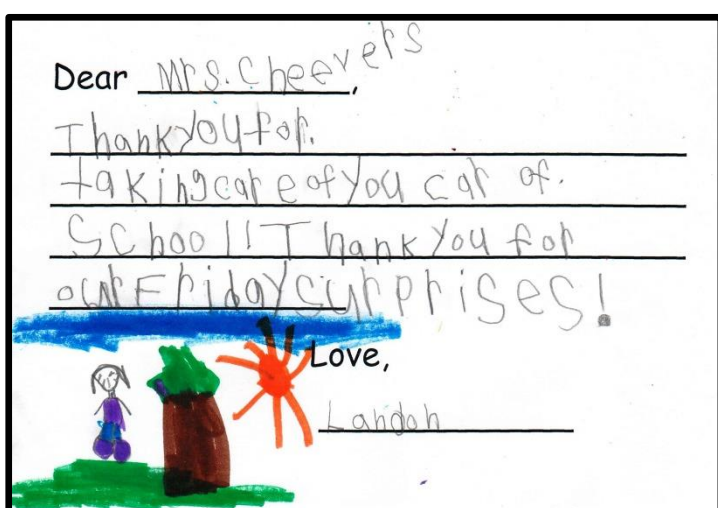 Dear Mrs. Cheevers,
Thank you for.
taking care of you car of.
School!! Thank you for
our Friday surprises!
Love,
Landon